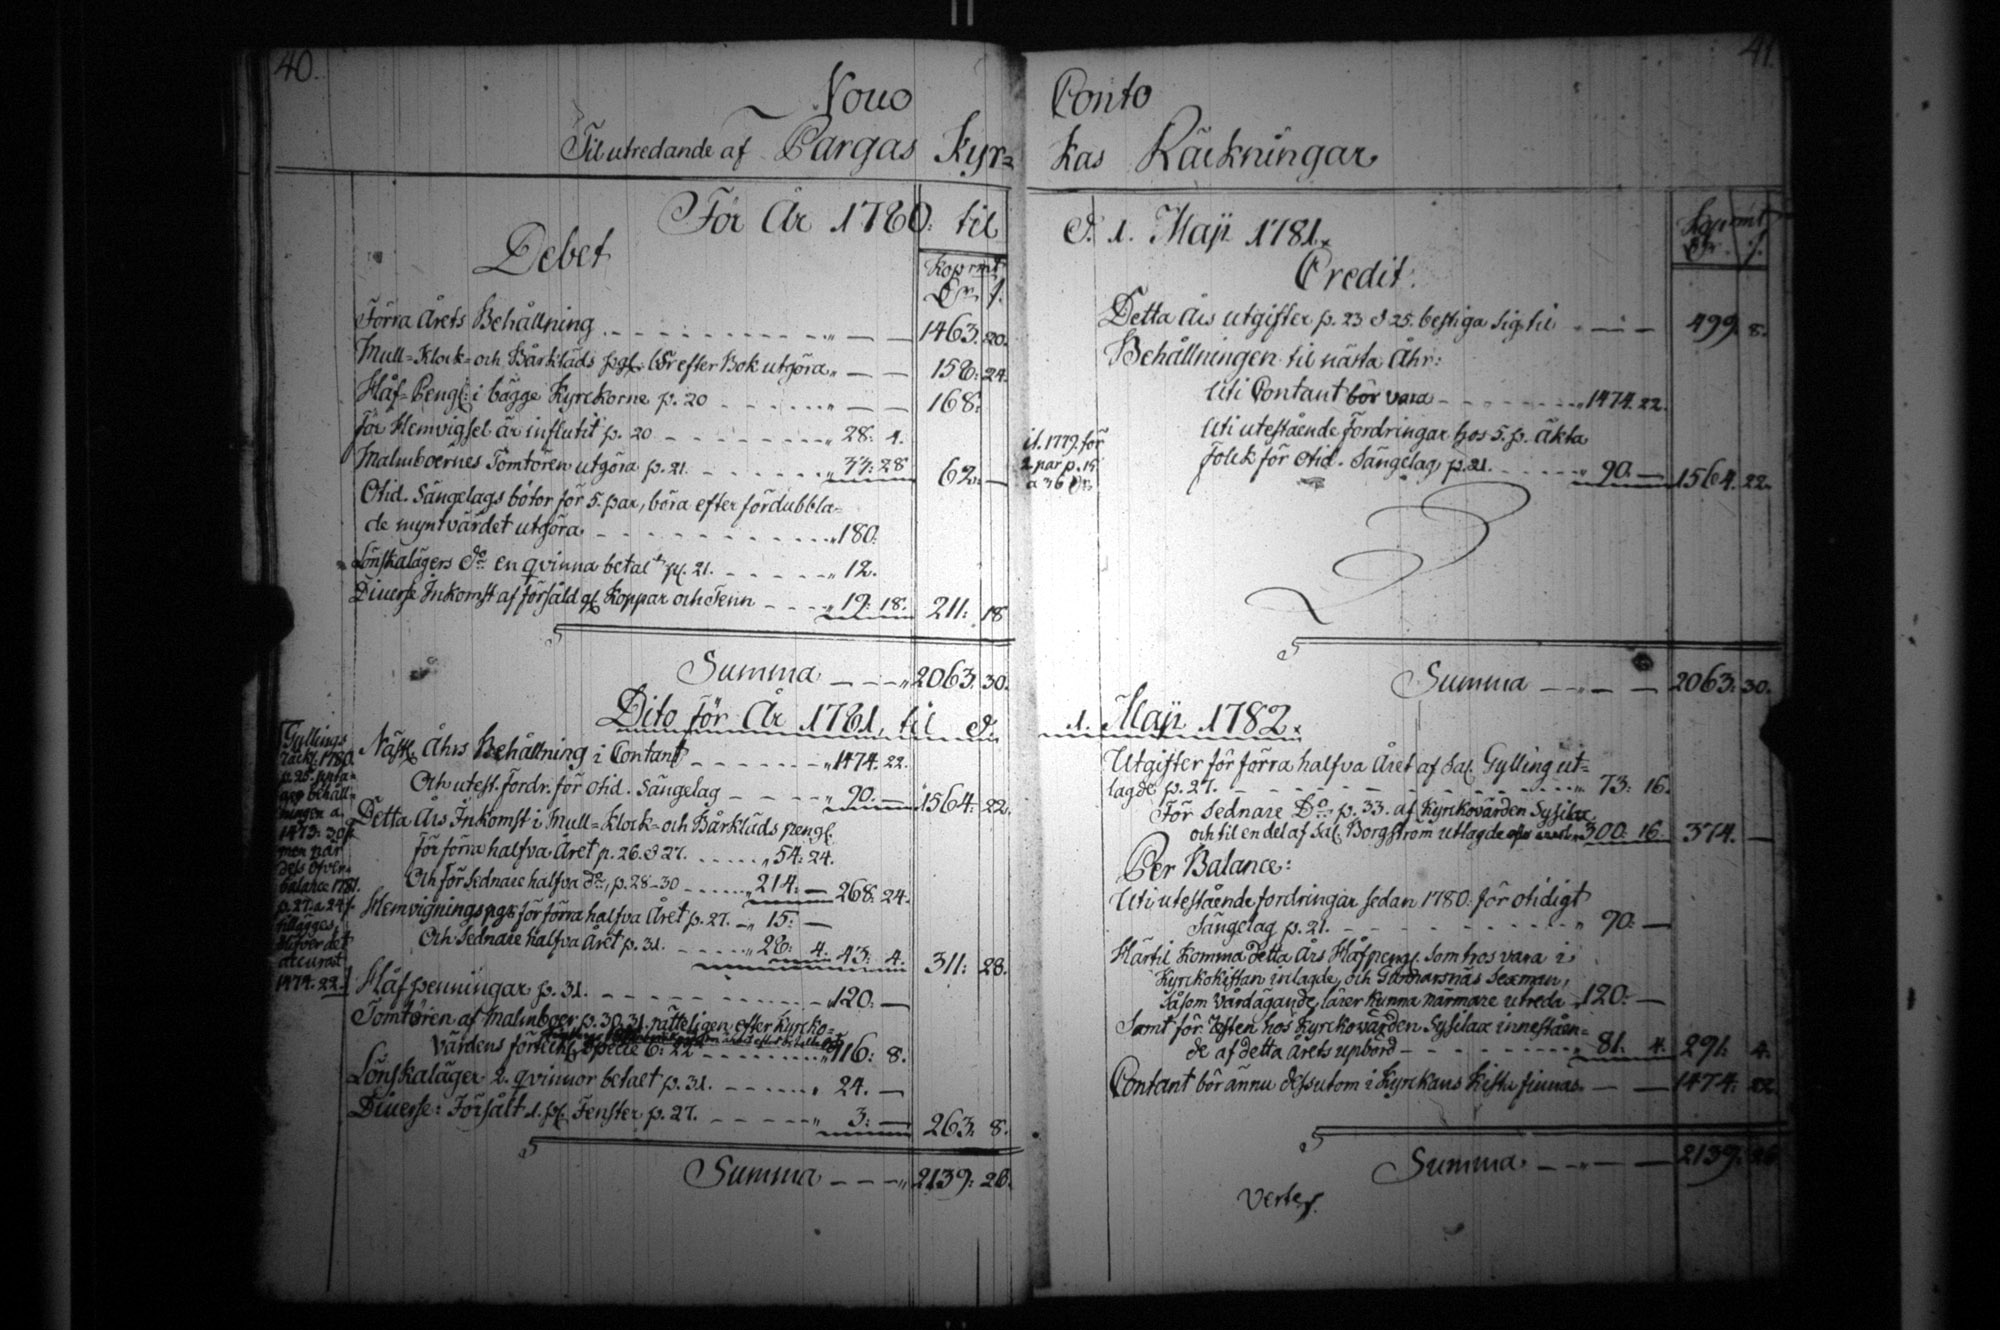 40.
Novo
Til utredande af Pargas Kyr=
För År 1780. til
Debet
Kopmt
Dr. /.
Förra Årets Behållning " — — 1463. 20.
Mull= Klock= och Bårkläds pgr. bör efter Bok utgöra " — — 158: 24.
Håf= Peng: i bägge Kyrckorne p. 20 " — — 168:
För Hemvigsel är influtit p. 20 " 28: 4.
Malmboernes Tomtören utgöra p. 21. " 33: 28 62: —
Otid. Sängelags böter för 5. par, böra efter fördubbla=
de myntvärdet utgöra " 180:
Lönskalägers do en qvinna betalt p. 21. " 12.
Diverse Inkomst af försåld gl. Koppar och Tenn " 19: 18. 211: 18
Summa — — " 2063. 30.
Dito för År 1781, til d.
Näst. Åhrs Behållning i Contant " 1474. 22.
Och utest. fordr. för otid. Sängelag " 90. — 1564: 22.
Detta Års Inkomst i Mull= Klock= och Bårkläds pengl.
för förra halfva Året p. 26. & 27. " 54: 24.
Och för sednare halfva do, p. 28-30 " 214: — 268: 24.
Hemvignings pgr för förra halfva Året p. 27. " 15: —
Och sednare halfva Året p. 31. " 28: 4. 43: 4. 311: 28.
Håfpenningar p. 31. " 120: —
Tomtören af Malmboer p. 30. 31. rätteligen efter Kyrcko=
värdens 6: 22 " 116: 8.
Lönskaläger 2. qvinnor betalt p. 31. " 24. —
Diverse: Försålt 1. st. Fenster p. 27. " 3: — 263: 8.
Summa — — — " 2139: 26.
Gyllings
räkn: 1780.
p. 25. upta=
ger behåll=
ningen a
1473: 30/.
men när
dess öfver=
balance 1781.
p. 27. a 24/.
tillägges,
blifver det
accurat
1474. 22.
41.
Conto
kas Räckningar
d. 1. Maji 1781.
Kopmt
Dr. /.
Credit.
Detta Års utgifter p. 23 & 25. bestiga sig til " — — 499. 8.
Behållningen til nästa Åhr:
Uti Contant bör vara " 1474. 22.
Uti utestående Fordringar hos 5. p. Äkta
folck för otid. Sängelag, p. 21. " 90. — 1564. 22.
it. 1779. för
2. par p. 15
a 36 Dr.
Summa — " — — 2063: 30.
1. Maji 1782.
Utgifter för förra halfva Året af Sal. Gylling ut=
lagde p. 27. " 73: 16.
För Sednare Do, p. 33. af Kyrkovärden Sysilax
och til en del af Sal. Borgström utlagde 300: 16. 374. —
Per Balance:
Uti utestående fordringar sedan 1780. för otidigt
Sängelag p. 21. " 90: —
Härtil komma detta Års Håfpeng. som tros vara i
Kyrckokistan inlagde, och Gunnarsnäs Sexman,
såsom vårdägande, lärer kunna närmare utreda " 120: —
Samt för Resten hos Kyrckovärden Sysilax inneståen=
de af detta Årets upbörd " 81. 4. 291. 4.
Contant bör ännu dessutom i Kyrckans Kista finnas — — 1474: 22
Summa — " — — 2139: 26
Verte/.